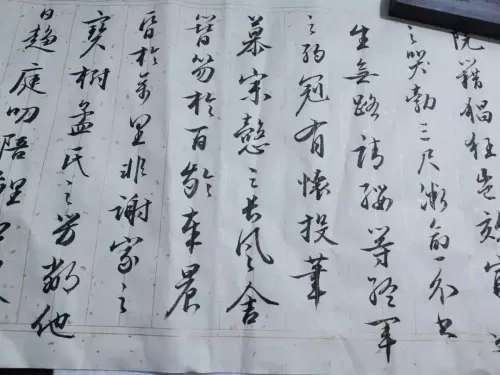 阮籍猖狂豈效窮
之哭勃三尺微命一介書
生無路請纓等終軍
之弱冠有懷投筆
慕宗慤之長風舍
簪笏於百齡奉晨
昏於萬里非謝家之
寶樹孟氏之芳鄰他
日趨庭叨陪鯉